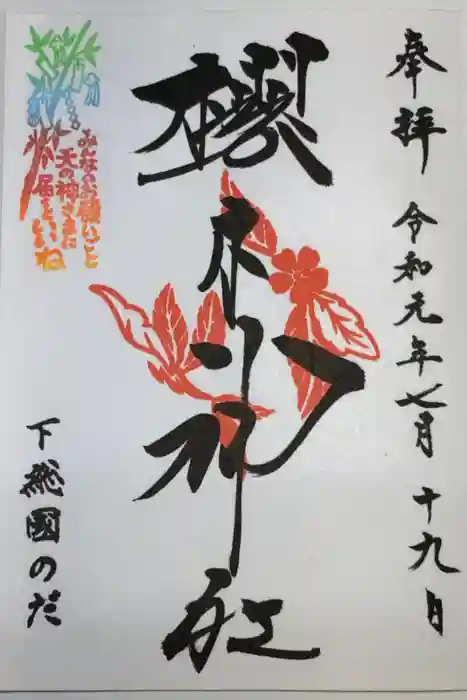 奉拝
令和元年七月十九日
櫻木神社
みんなのお願いごと
天の神さまに
届くといいね
下総國のだ